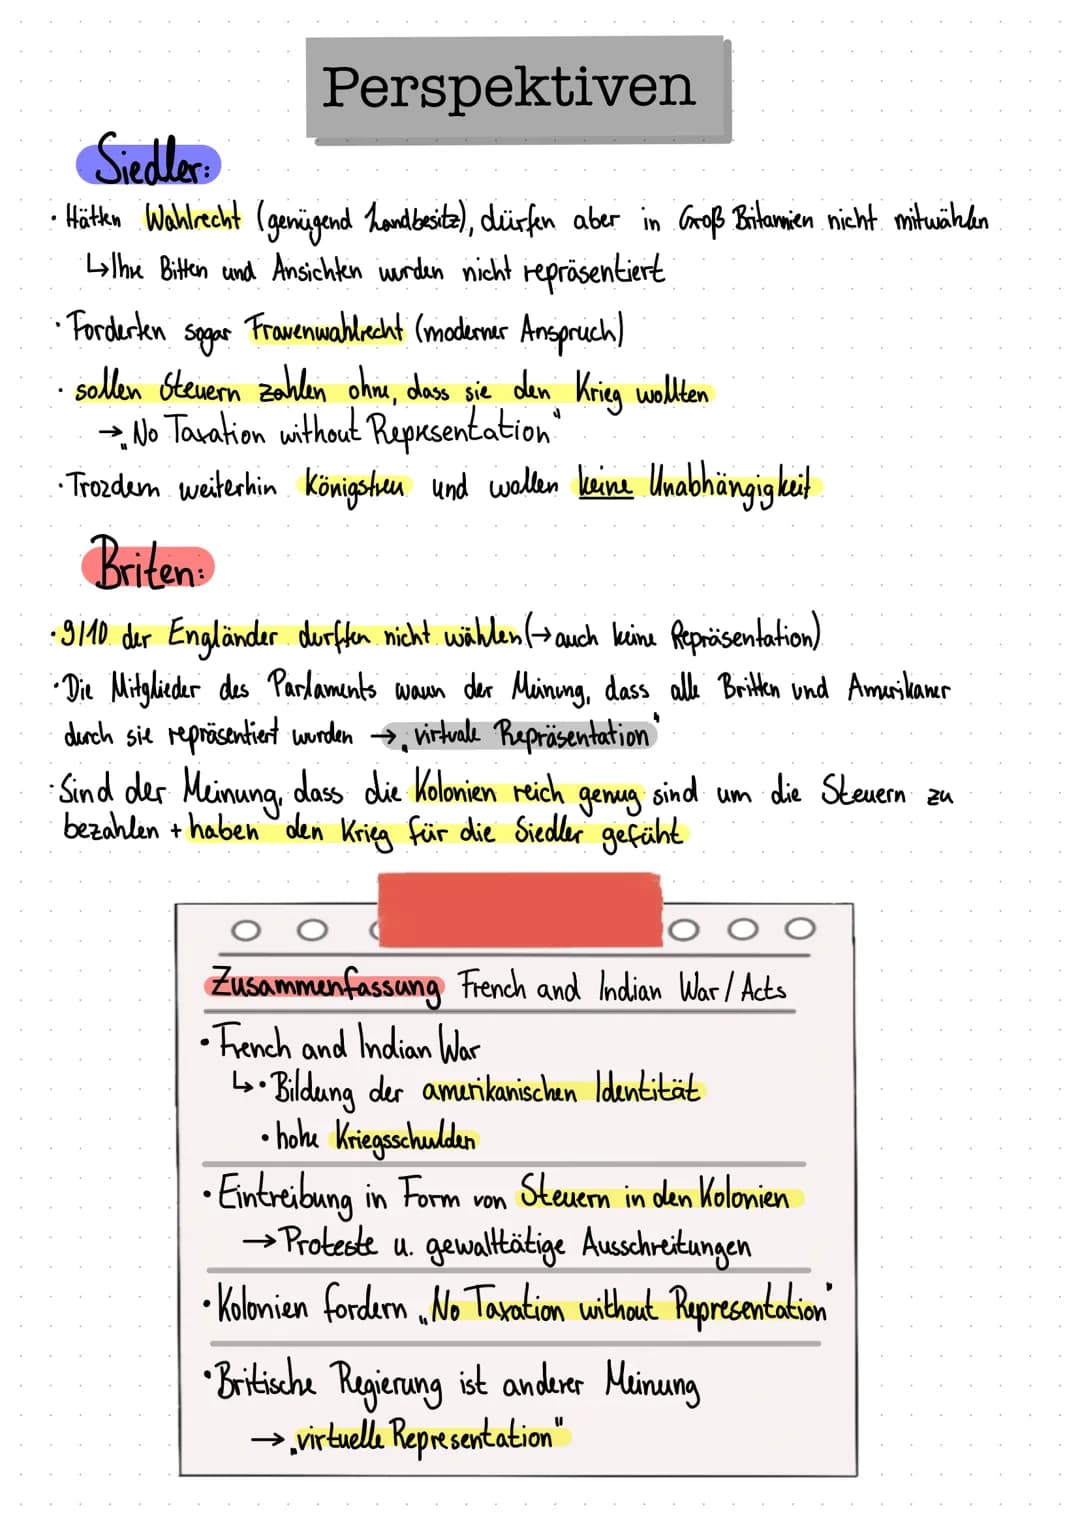 Perspektiven
Siedler:
· Hätten Wahlrecht (genügend Landbesitz), dürfen aber in Groß Britannien nicht mitwählen
↳Ihre Bitten und Ansichten wurden nicht repräsentiert
· Forderten sogar Frauenwahlrecht (moderner Anspruch)
· sollen Steuern zahlen ohne, dass sie den Krieg wollten
→ „No Taxation without Representation"
· Trozdem weiterhin Königstreu und wollen keine Unabhängigkeit
Briten:
· 9/10 der Engländer durften nicht wählen (→ auch keine Repräsentation)
· Die Mitglieder des Parlaments waren der Meinung, dass alle Britten und Amerikaner
durch sie repräsentiert wurden → „virtuale Repräsentation"
· Sind der Meinung, dass die Kolonien reich genug sind um die Steuern zu
bezahlen + haben den Krieg für die Siedler gefüht
Zusammenfassung French and Indian War / Acts
• French and Indian War
↳ • Bildung der amerikanischen Identität
• hohe Kriegsschulden
• Eintreibung in Form von Steuern in den Kolonien
→ Proteste u. gewalttätige Ausschreitungen
• Kolonien fordern „No Taxation without Representation"
• Britische Regierung ist anderer Meinung
→ „virtuelle Representation"